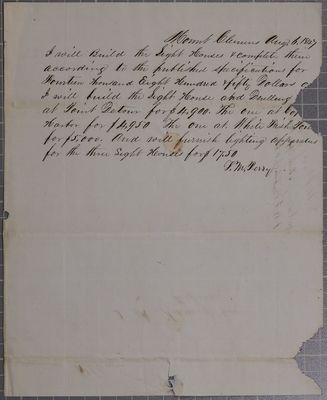 Mount Clemens Augt 6, 1847
I will Build the Light Houses & complete them
according to the published specifications for
Fourteen Thousand Eight Hundred & fifty Dollars or
I will build the Light House and Dwelling
at Point Detour for $4,900. The one at Cop
Harbor for $4,950 The one at White Fish Poin
for $5,000. And will furnish lighting apparatus
for the three Light Houses for $1750